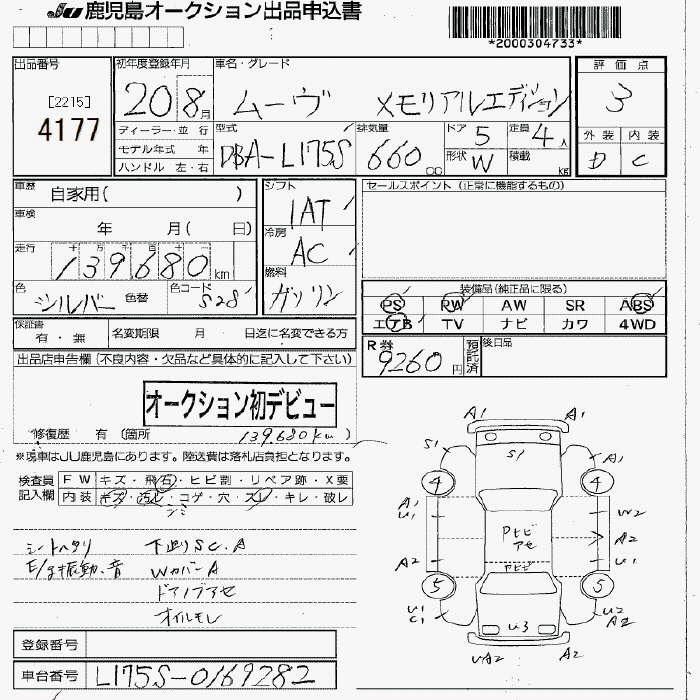 JU 鹿児島オークション出品申込書
*2000304733*
出品番号 初年度登録年月 車名・グレード 評価点
[2215]
4177
20 8月 ムーヴ メモリアルエディション 3
ディーラー・並行 型式 排気量 ドア 5 定員 4人 外装 内装
モデル年式 年 DBA-L175S 660cc 形状 W 積載 kg D C
ハンドル 左・右
車歴 自家用( ) シフト セールスポイント (正常に機能するもの)
1AT
車検 年 月( 日) 冷房
AC
走行 十 万 千 百 十
139680km 燃料
ガソリン
色 シルバー 色替 色コード S28 装備品(純正品に限る)
PS PW AW SR ABS
エアB TV ナビ カワ 4WD
保証書 有・無 名変期限 月 日迄に名変できる方
R券 9260円 預託済 後日品
出品店申告欄(不良内容・欠品など具体的に記入して下さい)
オークション初デビュー
修復歴 有 (箇所
139.680km)
※現車はJU鹿児島にあります。陸送費は落札店負担となります。
検査員記入欄 FW キズ・飛石・ヒビ割・リペア跡・X要
内装 キズ・汚レ・コゲ・穴・スレ・キレ・破レ
シミ
シートヘタリ 下廻りSC.A
E/g振動.音 WカバーA
ドアノブアセ
オイルモレ
A1 A1
S1 S1 A1
4 4
A1 U1 W2
Pヒビ アセ A2
A2 Pヒビ U1
5 5
U1 C1 U3 U2 A2
UA2 A2
登録番号
車台番号 L175S-0169282